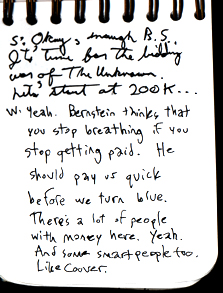 S: Okay, enough B.S.
It's time for the bidding
war of The Unknown.
Let's start at 200K...
W. Yeah. Bernstein thinks that
you stop breathing if you
stop getting paid. He
should pay us quick
before we turn blue.
There's a lot of people
with money here. Yeah.
And some smart people too.
Like Coover.